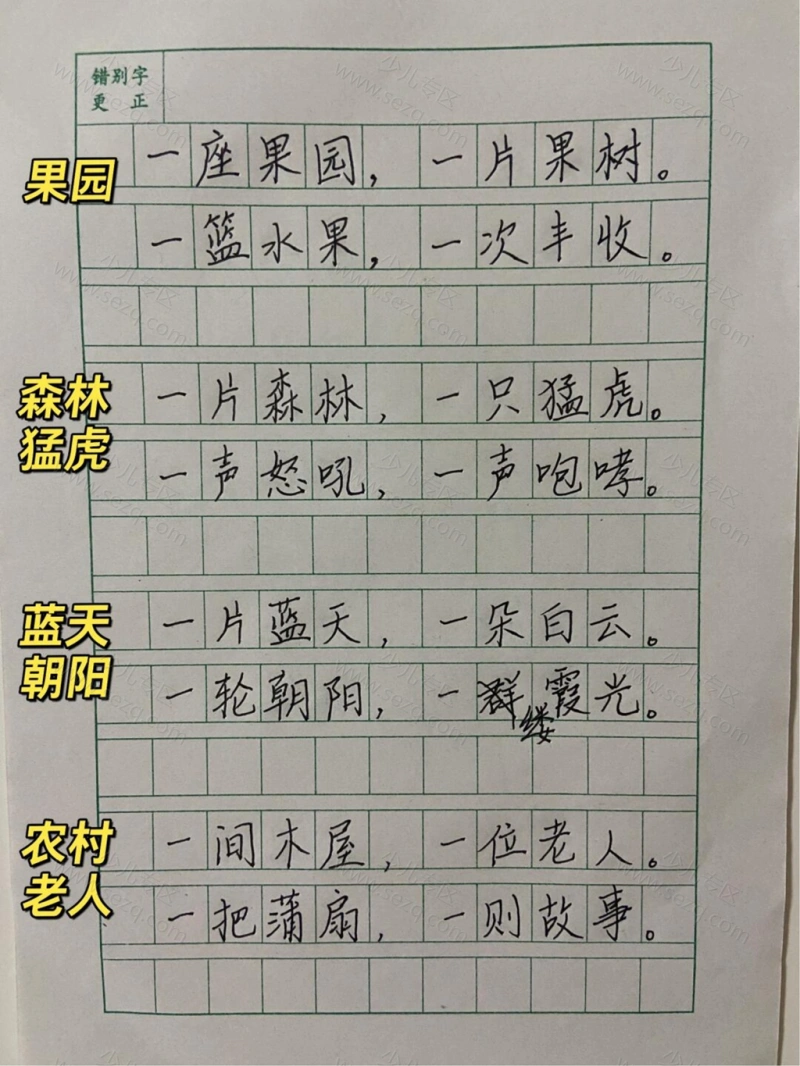 错别字
更 正
果园
一座果园，一片果树。
一篮水果，一次丰收。
森林
猛虎
一片森林，一只猛虎。
一声怒吼，一声咆哮。
蓝天
朝阳
一片蓝天，一朵白云。
一轮朝阳，一群霞光。
缕
农村
老人
一间木屋，一位老人。
一把蒲扇，一则故事。
少儿专区
www.sezq.com